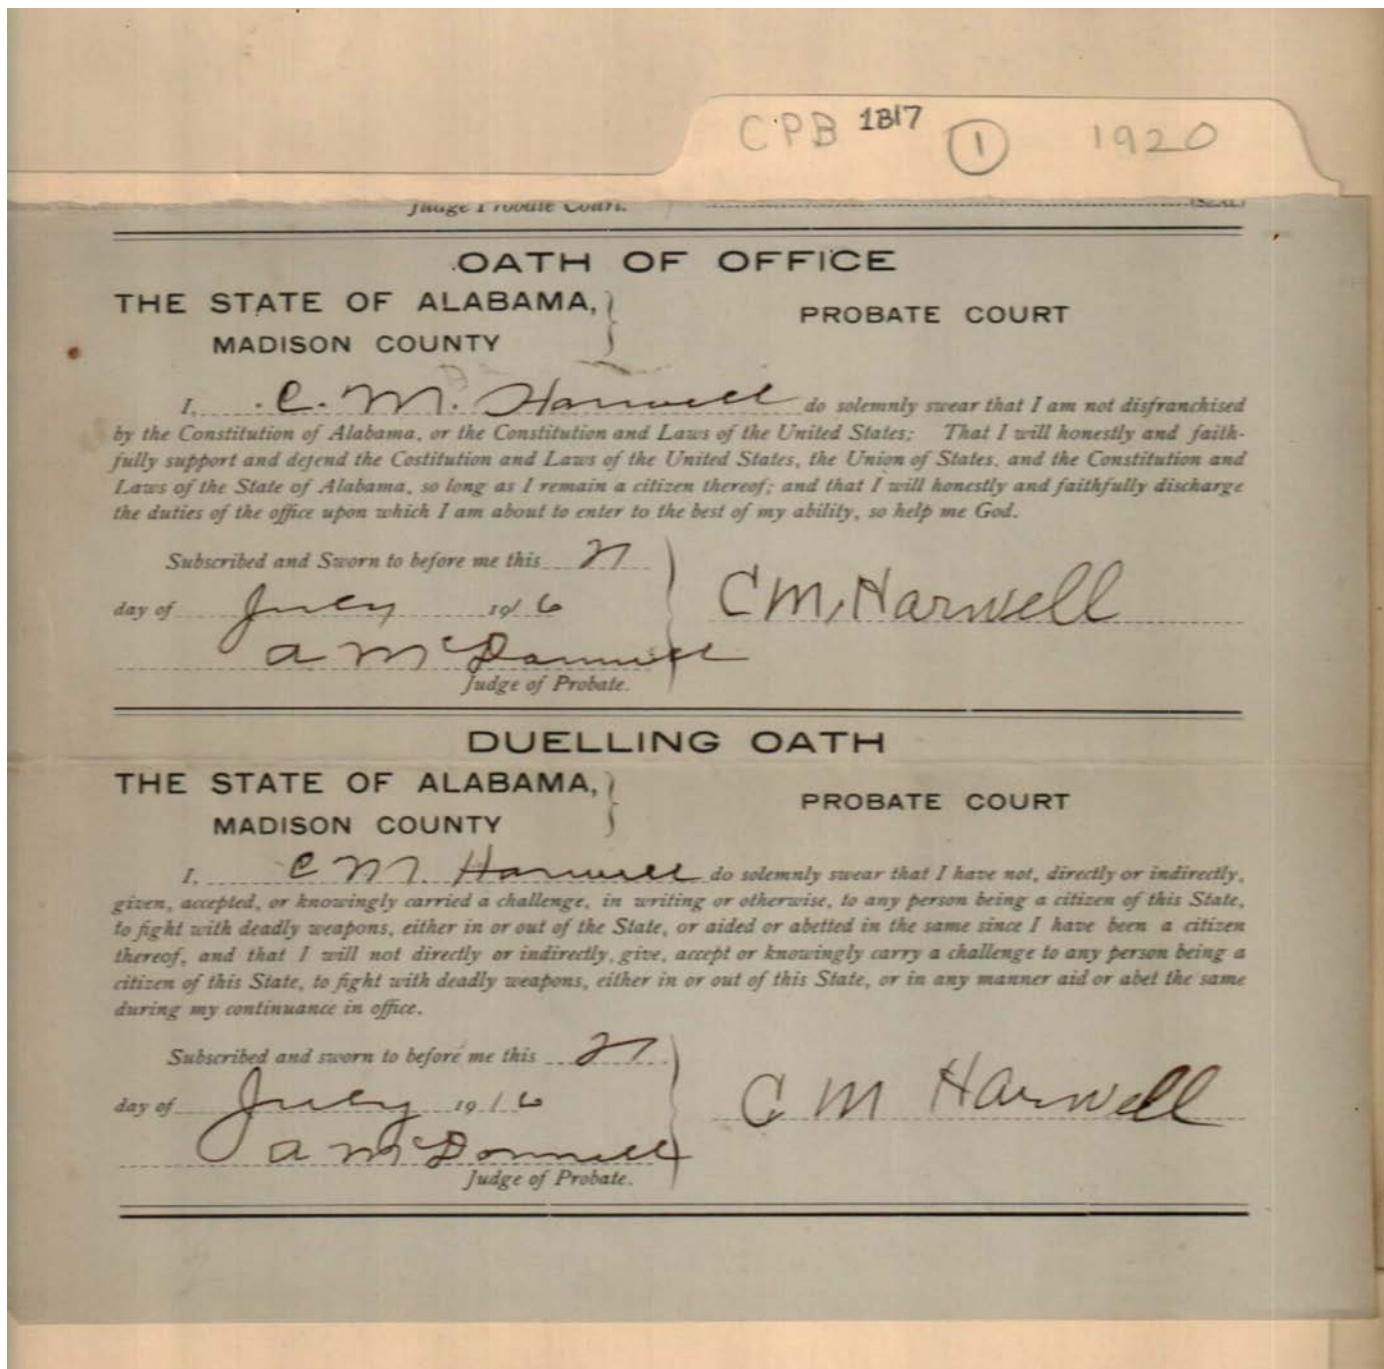 CPB 1817 1 1920
Judge Probate Court. (SEAL)
OATH OF OFFICE
THE STATE OF ALABAMA,
PROBATE COURT
MADISON COUNTY
I, C. M. Harwell do solemnly swear that I am not disfranchised
by the Constitution of Alabama, or the Constitution and Laws of the United States; That I will honestly and faith-
fully support and defend the Costitution and Laws of the United States, the Union of States, and the Constitution and
Laws of the State of Alabama, so long as I remain a citizen thereof; and that I will honestly and faithfully discharge
the duties of the office upon which I am about to enter to the best of my ability, so help me God.
Subscribed and Sworn to before me this
day of July 1916
C M Harwell
A McDonnell
Judge of Probate.
DUELLING OATH
THE STATE OF ALABAMA,
PROBATE COURT
MADISON COUNTY
I, C M. Harwell do solemnly swear that I have not, directly or indirectly,
given, accepted, or knowingly carried a challenge, in writing or otherwise, to any person being a citizen of this State,
to fight with deadly weapons, either in or out of the State, or aided or abetted in the same since I have been a citizen
thereof, and that I will not directly or indirectly, give, accept or knowingly carry a challenge to any person being a
citizen of this State, to fight with deadly weapons, either in or out of this State, or in any manner aid or abet the same
during my continuance in office.
Subscribed and sworn to before me this
day of July 1916
C M Harwell
A McDonnell
Judge of Probate.